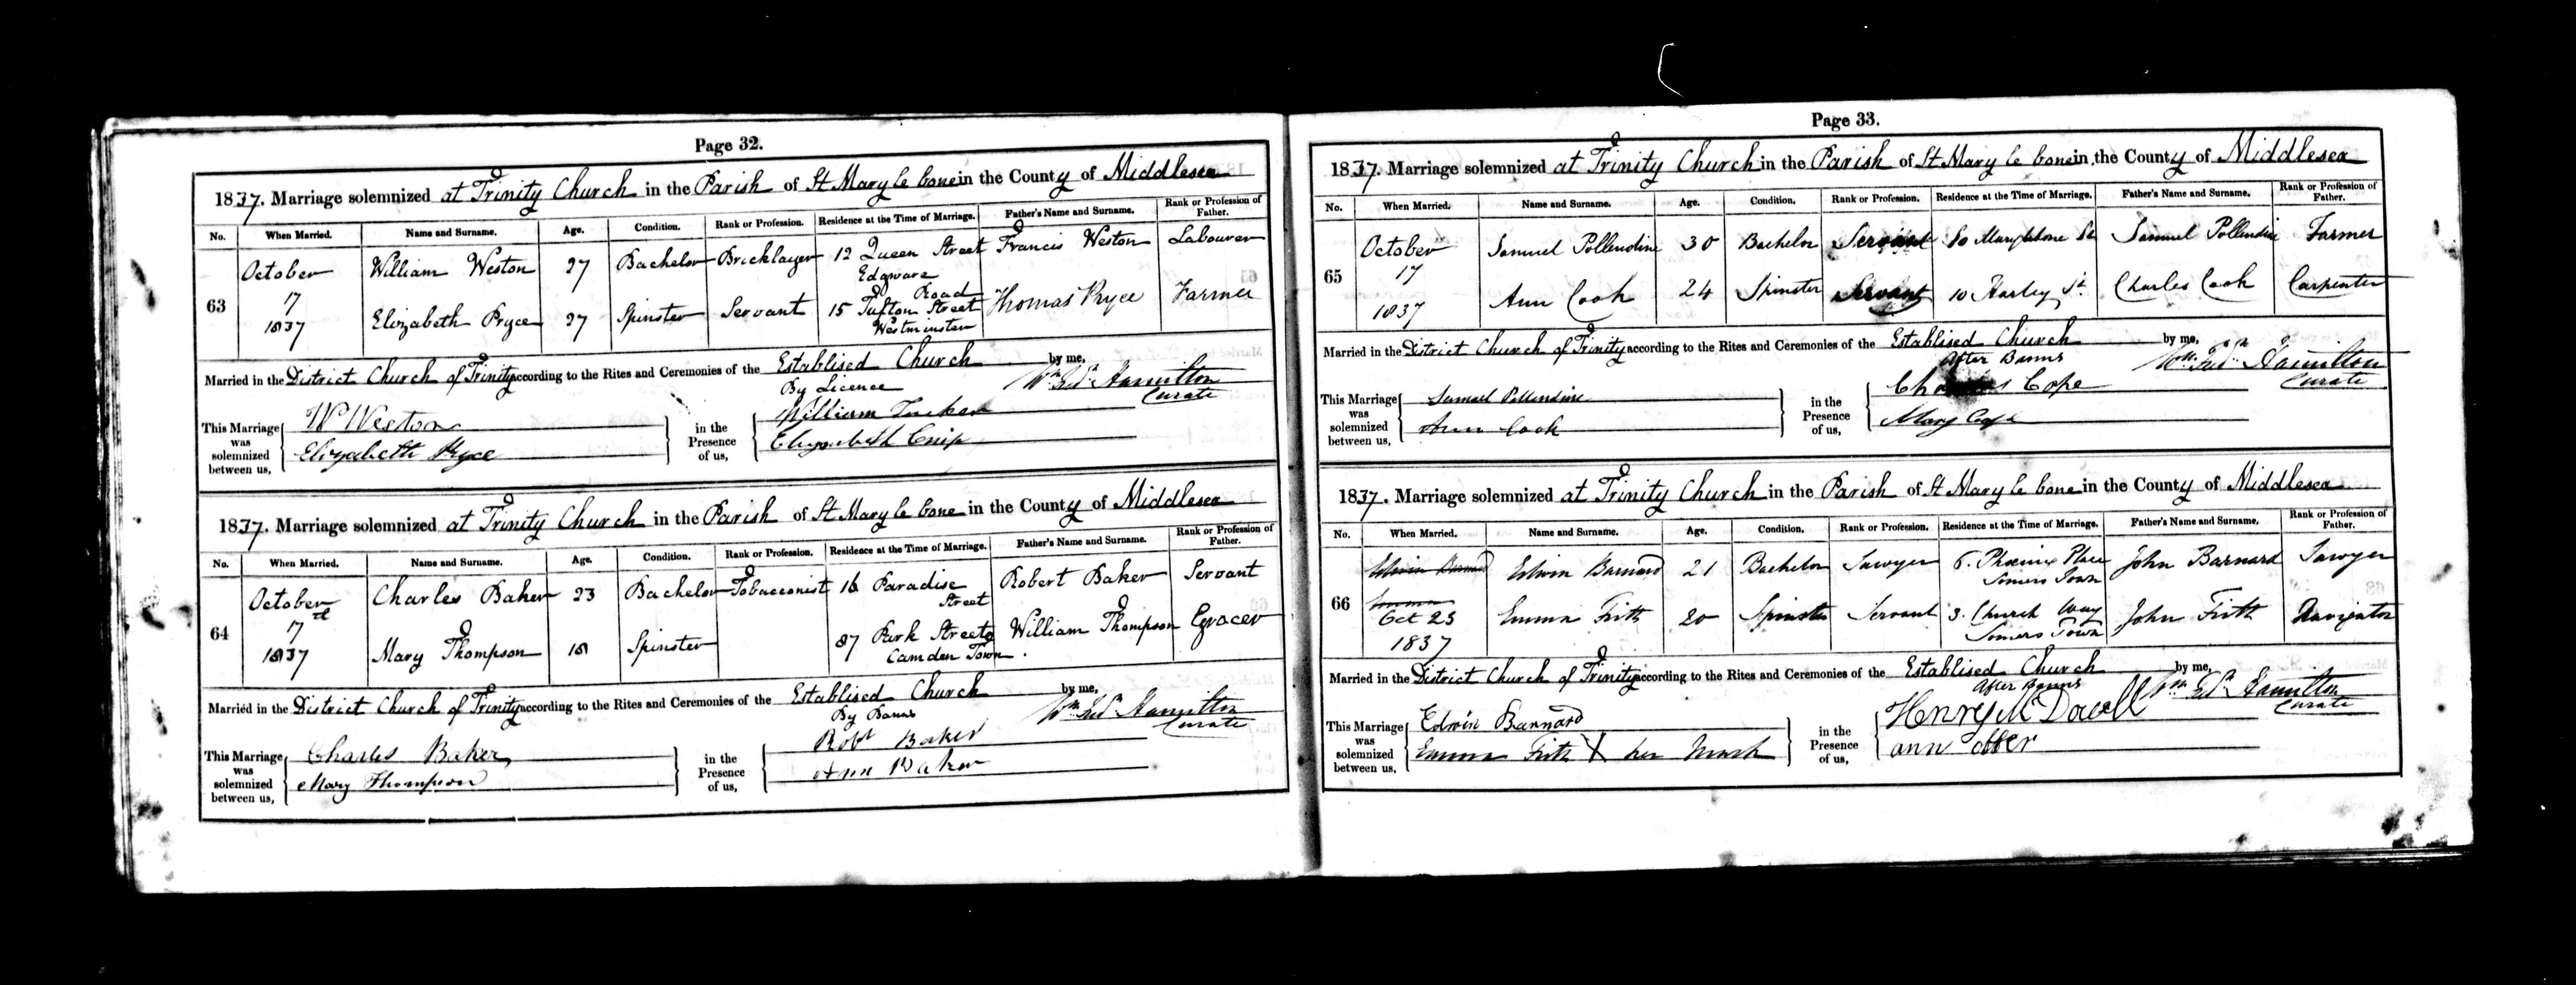 Page 32.
1837. Marriage solemnized at Trinity Church in the Parish of St Mary le bone in the County of Middlesex
No. When Married. Name and Surname. Age. Condition. Rank or Profession. Residence at the Time of Marriage. Father's Name and Surname. Rank or Profession of Father.
63 October 17 1837
William Weston 27 Bachelor Bricklayer 12 Queen Street Edgware Road Francis Weston Labourer
Elizabeth Pryce 27 Spinster Servant 15 Tufton Street Westminster Thomas Pryce Farmer
Married in the District Church of Trinity according to the Rites and Ceremonies of the Establised Church by me,
By Licence Wm Hamilton
Curate
This Marriage was solemnized between us, W Weston Elizabeth Pryce in the Presence of us, William Tucker Elizabeth
1837. Marriage solemnized at Trinity Church in the Parish of St Mary le bone in the County of Middlesex
No. When Married. Name and Surname. Age. Condition. Rank or Profession. Residence at the Time of Marriage. Father's Name and Surname. Rank or Profession of Father.
64 October 17th 1837
Charles Baker 23 Bachelor Tobacconist 16 Paradise Street Robert Baker Servant
Mary Thompson 18 Spinster 87 Park Street Camden Town William Thompson Grocer
Married in the District Church of Trinity according to the Rites and Ceremonies of the Establised Church by me,
By Banns Wm Hamilton
Curate
This Marriage was solemnized between us, Charles Baker Mary Thompson in the Presence of us, Robt Baker Ann Baker
Page 33.
1837. Marriage solemnized at Trinity Church in the Parish of St Mary le bone in the County of Middlesex
No. When Married. Name and Surname. Age. Condition. Rank or Profession. Residence at the Time of Marriage. Father's Name and Surname. Rank or Profession of Father.
65 October 17 1837
Samuel Pollendine 30 Bachelor Servant 80 Marylebone St Samuel Pollendine Farmer
Ann Cook 24 Spinster Servant 10 Harley St. Charles Cook Carpenter
Married in the District Church of Trinity according to the Rites and Ceremonies of the Establised Church by me,
After Banns Wm Hamilton
Curate
This Marriage was solemnized between us, Samuel Pollendine Ann Cook in the Presence of us, Cope Mary Cope
1837. Marriage solemnized at Trinity Church in the Parish of St Mary le bone in the County of Middlesex
No. When Married. Name and Surname. Age. Condition. Rank or Profession. Residence at the Time of Marriage. Father's Name and Surname. Rank or Profession of Father.
66 Edwin Barnard Emma Oct 23 1837
Edwin Barnard 21 Bachelor Sawyer 6. Phoenix Place Somers Town John Barnard Sawyer
Emma Frith 20 Spinster Servant 3. Church Way Somers Town John Frith Navigator
Married in the District Church of Trinity according to the Rites and Ceremonies of the Establised Church by me,
After Banns Wm Hamilton
Curate
This Marriage was solemnized between us, Edwin Barnard Emma Frith X her mark in the Presence of us, Henry McDowell ann